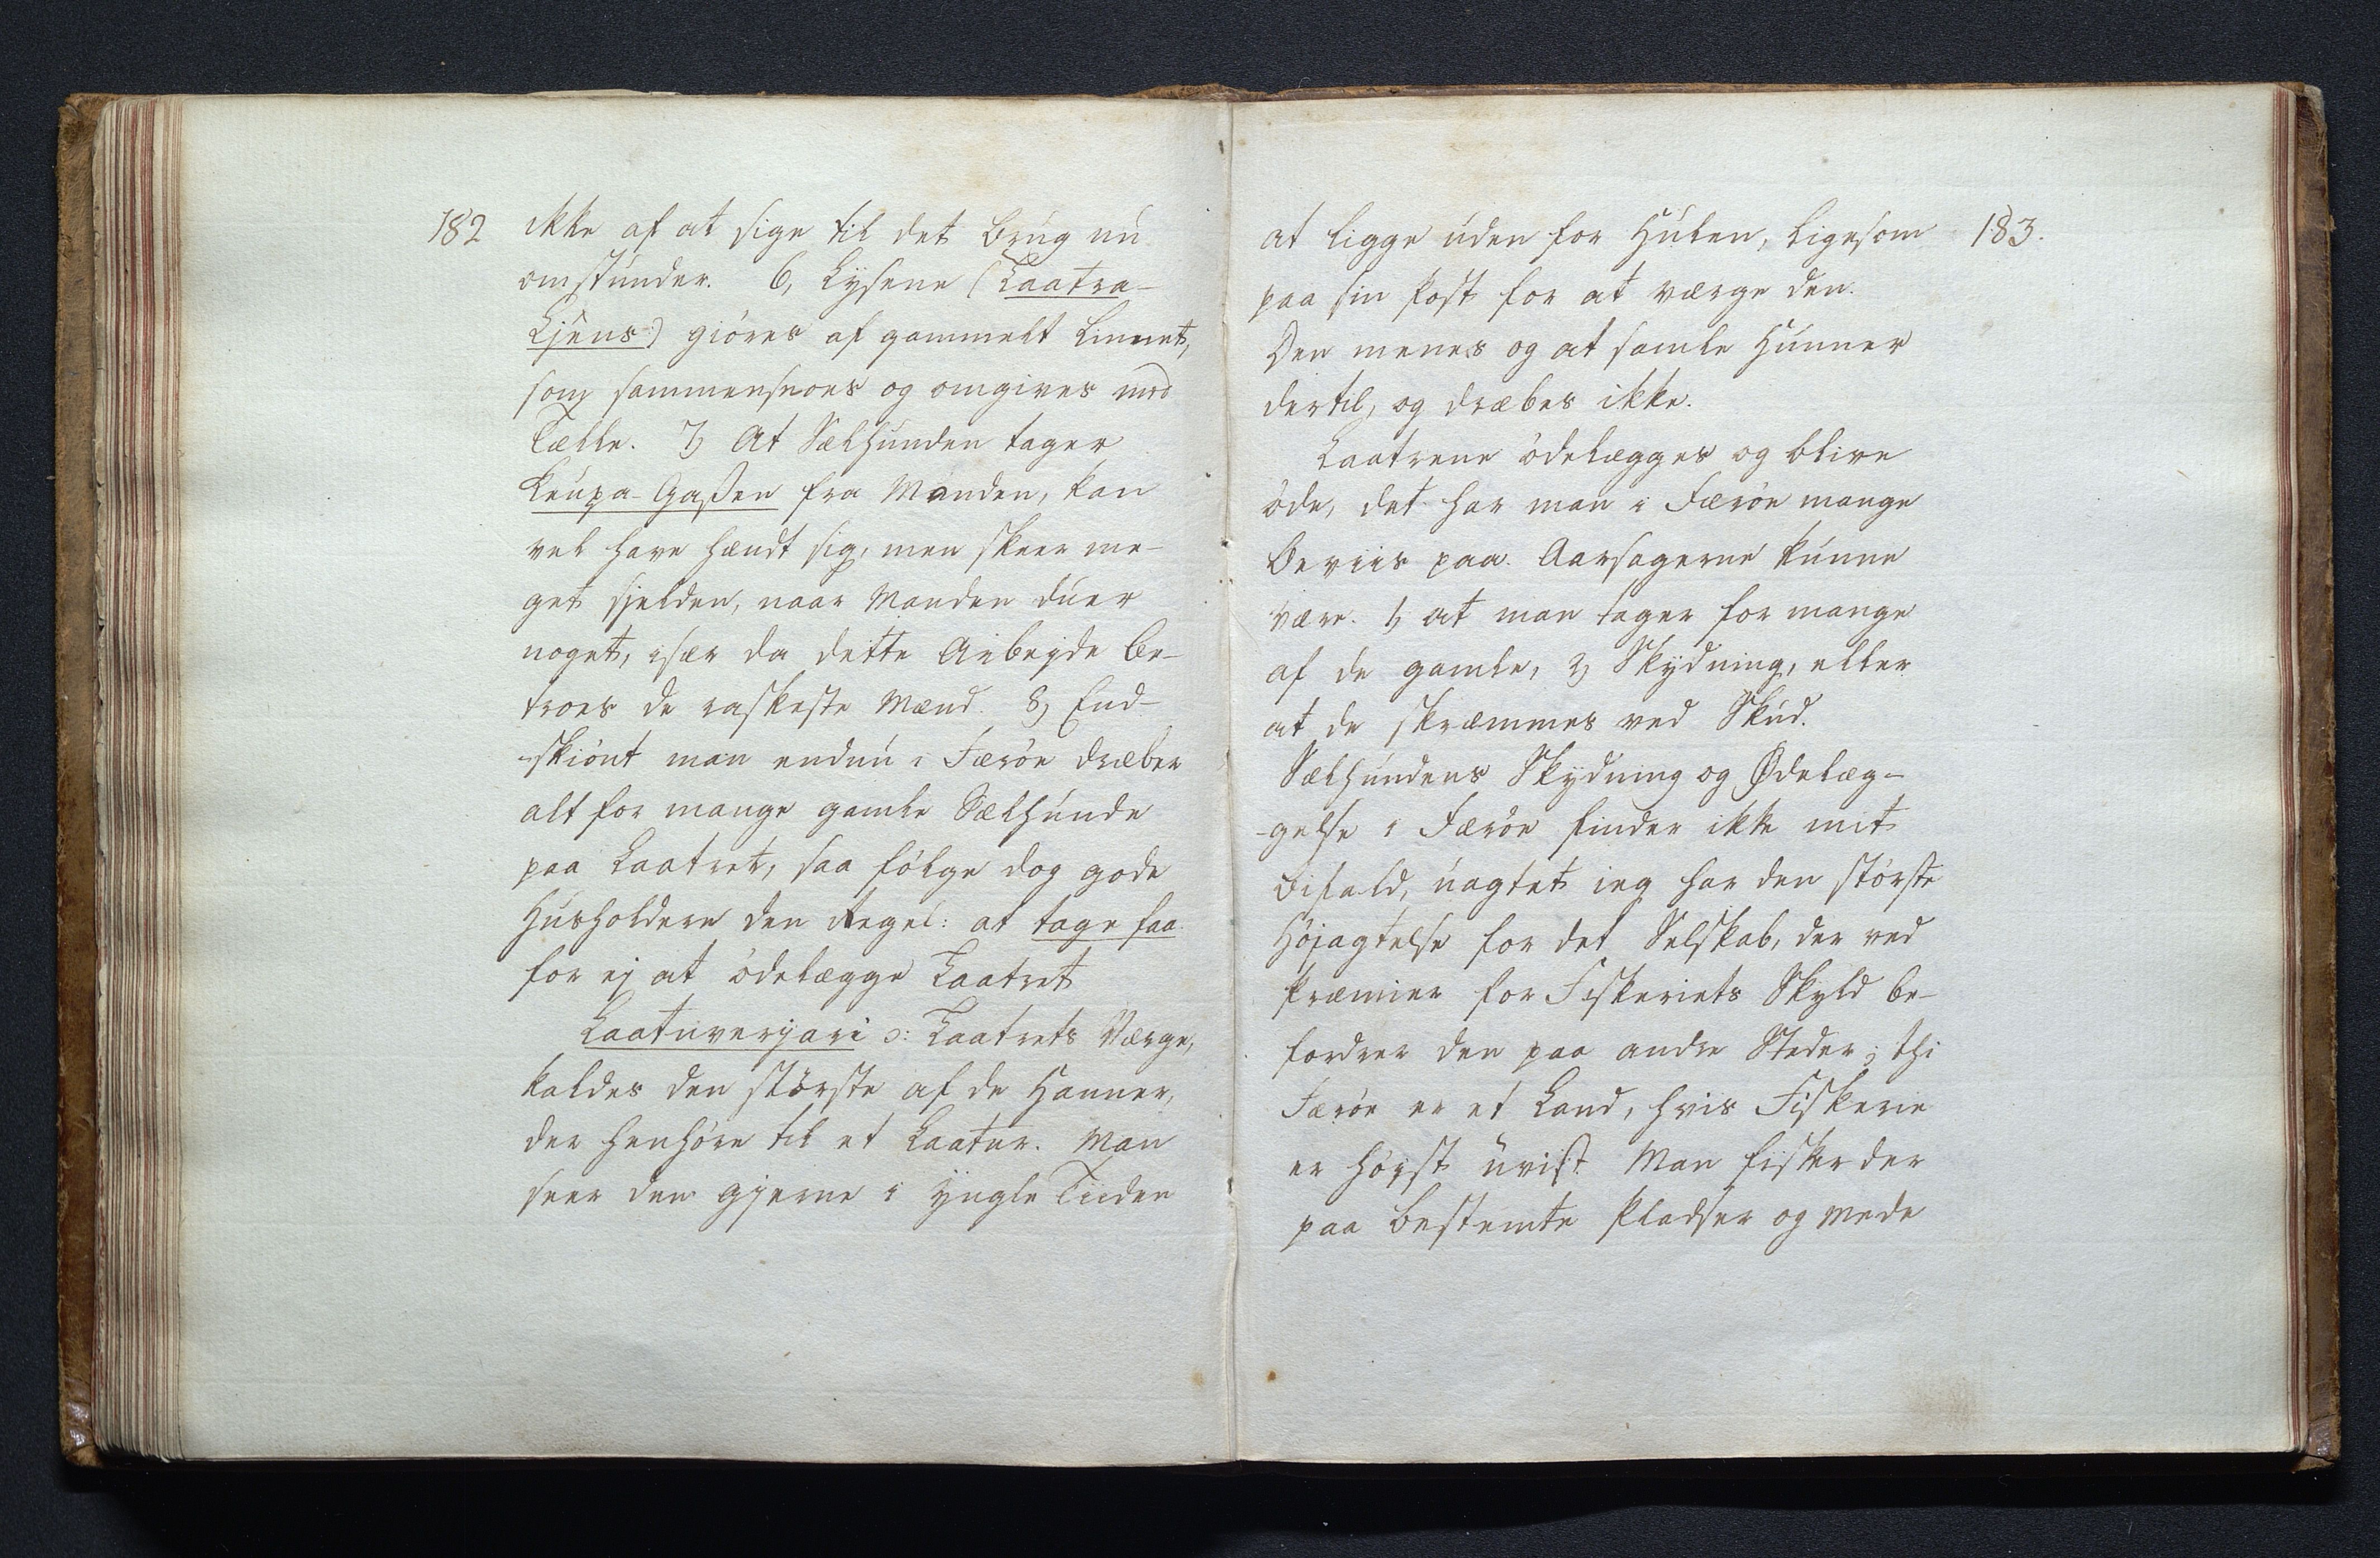 182
ikke af at sige til det Brug nu
omstunder. 6, Lysene (Laatra-
Ljøns) giöres af gammelt Linnet,
som sammensnoes og omgives med
Tælle. 7, At Sælhunden tager
Keupa-Gaßen fra Manden, kan
vel have hændt sig, men skeer me-
get sjelden, naar Manden duer
noget, især da dette Arbeyde be-
troes de raskeste Mænd. 8, End-
skiönt man endnu i Færöe dræber
alt for mange gamle Sælhunde
paa Laatret, saa fölge dog gode
Husholdere den Regel: at tage faa
for ej at ödelægge Laatret
Laatuverjari ɔ: Laatrets Værge,
kaldes den störste af de Hanner,
der henhöre til et Laatur. Man
seer den gjerne i Yngle Tiiden
183.
at ligge uden for Hulen, ligesom
paa sin Post for at værge den.
Den menes og at samle Hunner
dertil, og dræbes ikke.
Laatrene ödelægges og blive
öde, det har man i Færöe mange
Beviis paa. Aarsagerne kunne
være. 1, at man tager for mange
af de gamle, 2, Skydning, eller
at de skræmmes ved Skud.
Sælhundens Skydning og Ødelæg-
-gelse i Færöe finder ikke mit
Bifald, uagtet ieg har den störste
Höjagtelse for det Selskab, der ved
Præmier for Fiskeriets Skyld be-
fordrer den paa andre Steder; thi
Færöe er et Land, hvis Fiskerie
er höyst uvist. Man fisker der
paa bestemte Pladser og Mede